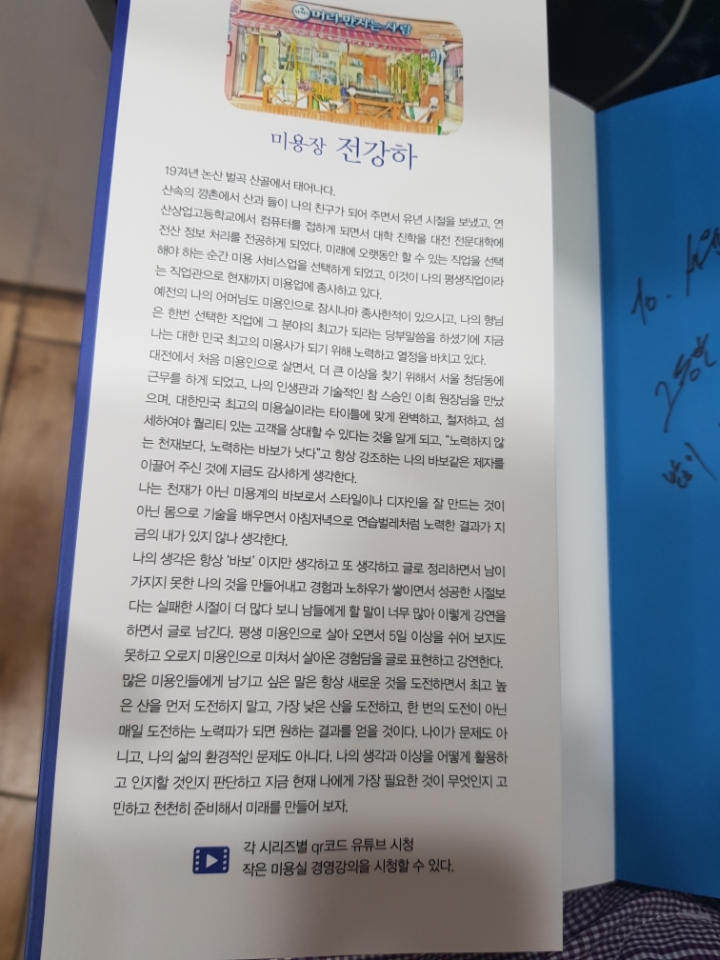 머리 만지는 사람
미용장 전강하
1974년 논산 벌곡 산골에서 태어나다.
산속의 깡촌에서 산과 들이 나의 친구가 되어 주면서 유년 시절을 보냈고, 연
산상업고등학교에서 컴퓨터를 접하게 되면서 대학 진학을 대전 전문대학에
전산 정보 처리를 전공하게 되었다. 미래에 오랫동안 할 수 있는 직업을 선택
해야 하는 순간 미용 서비스업을 선택하게 되었고, 이것이 나의 평생직업이라
는 직업관으로 현재까지 미용업에 종사하고 있다.
예전의 나의 어머님도 미용인으로 잠시나마 종사한적이 있으시고, 나의 형님
은 한번 선택한 직업에 그 분야의 최고가 되라는 당부말씀을 하셨기에 지금
나는 대한 민국 최고의 미용사가 되기 위해 노력하고 열정을 바치고 있다.
대전에서 처음 미용인으로 살면서, 더 큰 이상을 찾기 위해서 서울 청담동에
근무를 하게 되었고, 나의 인생관과 기술적인 참 스승인 이희 원장님을 만났
으며, 대한민국 최고의 미용실이라는 타이틀에 맞게 완벽하고, 철저하고, 섬
세하여야 퀄리티 있는 고객을 상대할 수 있다는 것을 알게 되고, "노력하지 않
는 천재보다, 노력하는 바보가 낫다"고 항상 강조하는 나의 바보같은 제자를
이끌어 주신 것에 지금도 감사하게 생각한다.
나는 천재가 아닌 미용계의 바보로서 스타일이나 디자인을 잘 만드는 것이
아닌 몸으로 기술을 배우면서 아침저녁으로 연습벌레처럼 노력한 결과가 지
금의 내가 있지 않나 생각한다.
나의 생각은 항상 '바보' 이지만 생각하고 또 생각하고 글로 정리하면서 남이
가지지 못한 나의 것을 만들어내고 경험과 노하우가 쌓이면서 성공한 시절보
다는 실패한 시절이 더 많다 보니 남들에게 할 말이 너무 많아 이렇게 강연을
하면서 글로 남긴다. 평생 미용인으로 살아 오면서 5일 이상을 쉬어 보지도
못하고 오로지 미용인으로 미쳐서 살아온 경험담을 글로 표현하고 강연한다.
많은 미용인들에게 남기고 싶은 말은 항상 새로운 것을 도전하면서 최고 높
은 산을 먼저 도전하지 말고, 가장 낮은 산을 도전하고, 한 번의 도전이 아닌
매일 도전하는 노력파가 되면 원하는 결과를 얻을 것이다. 나이가 문제도 아
니고, 나의 삶의 환경적인 문제도 아니다. 나의 생각과 이상을 어떻게 활용하
고 인지할 것인지 판단하고 지금 현재 나에게 가장 필요한 것이 무엇인지 고
민하고 천천히 준비해서 미래를 만들어 보자.
각 시리즈별 qr코드 유튜브 시청
작은 미용실 경영강의을 시청할 수 있다.
to.